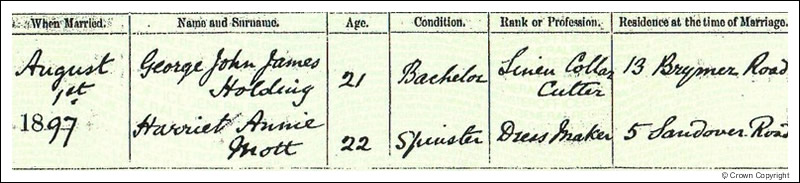 When Married. Name and Surname. Age. Condition. Rank or Profession. Residence at the time of Marriage.
August George John James Linen Collar
1st Holding 21 Bachelor Cutter 13 Brymer Road
1897 Harriet Annie
Mott 22 Spinster Dress Maker 5 Sandover Road
© Crown Copyright